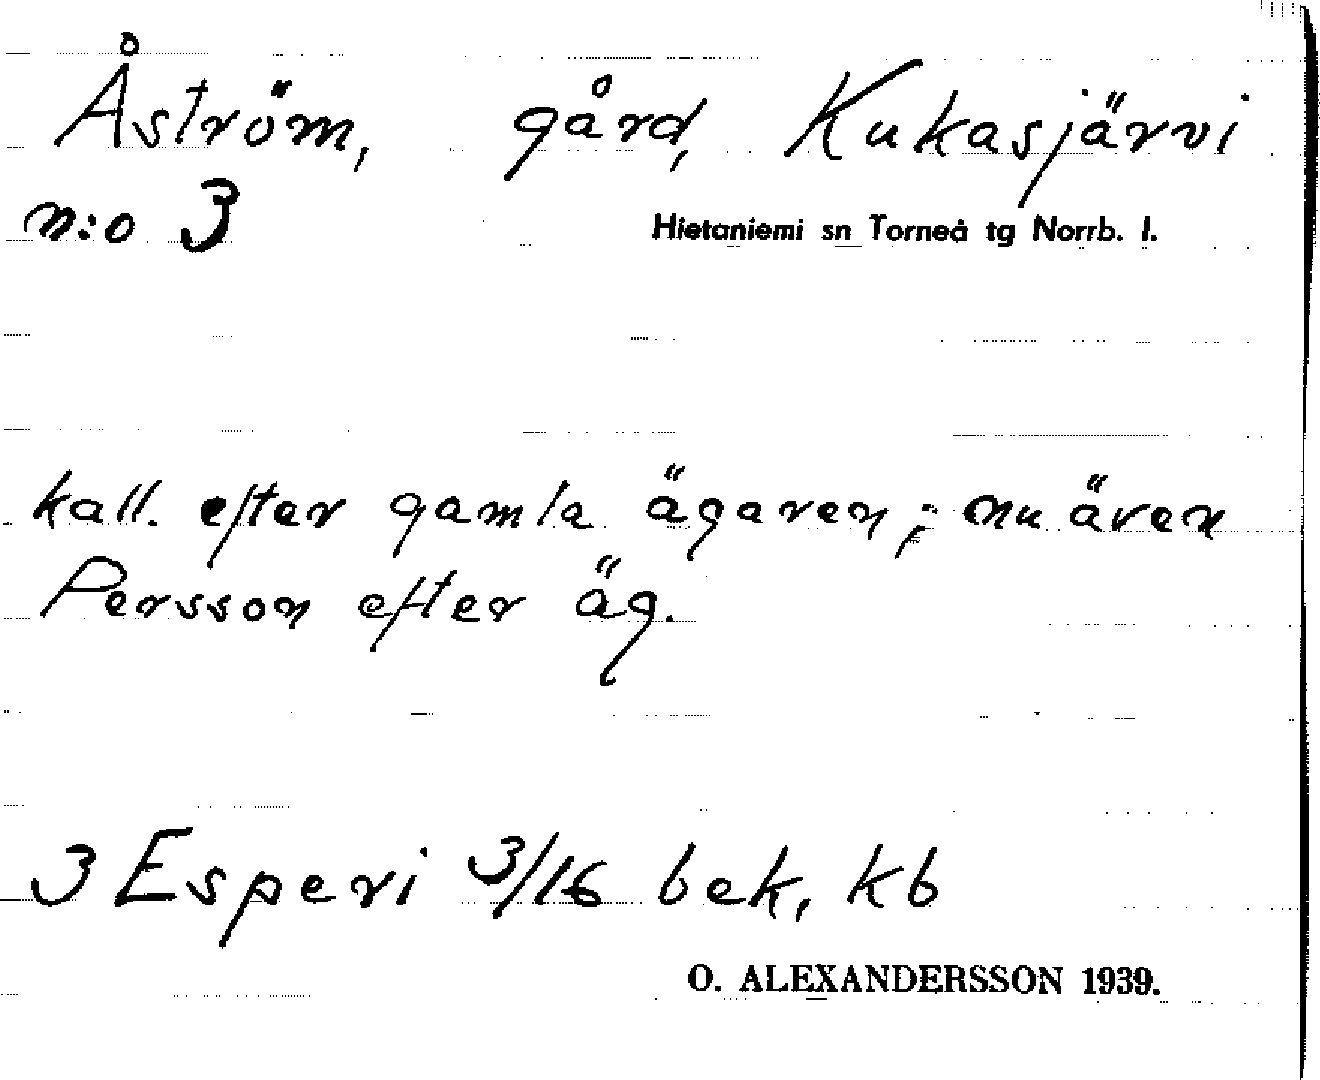 Åström, gård, Kukasjärvi
n:o 3 Hietaniemi sn Torneå tg Norrb. l.
kall. efter gamla ägaren; nu även
Persson efter äg.
3 Esperi 3/16 bek, kb
O. ALEXANDERSSON 1939.